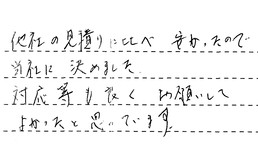 他社の見積りに比べ 安かったので
当社に 決めました
対応等も良く お願いして
よかったと思いています。